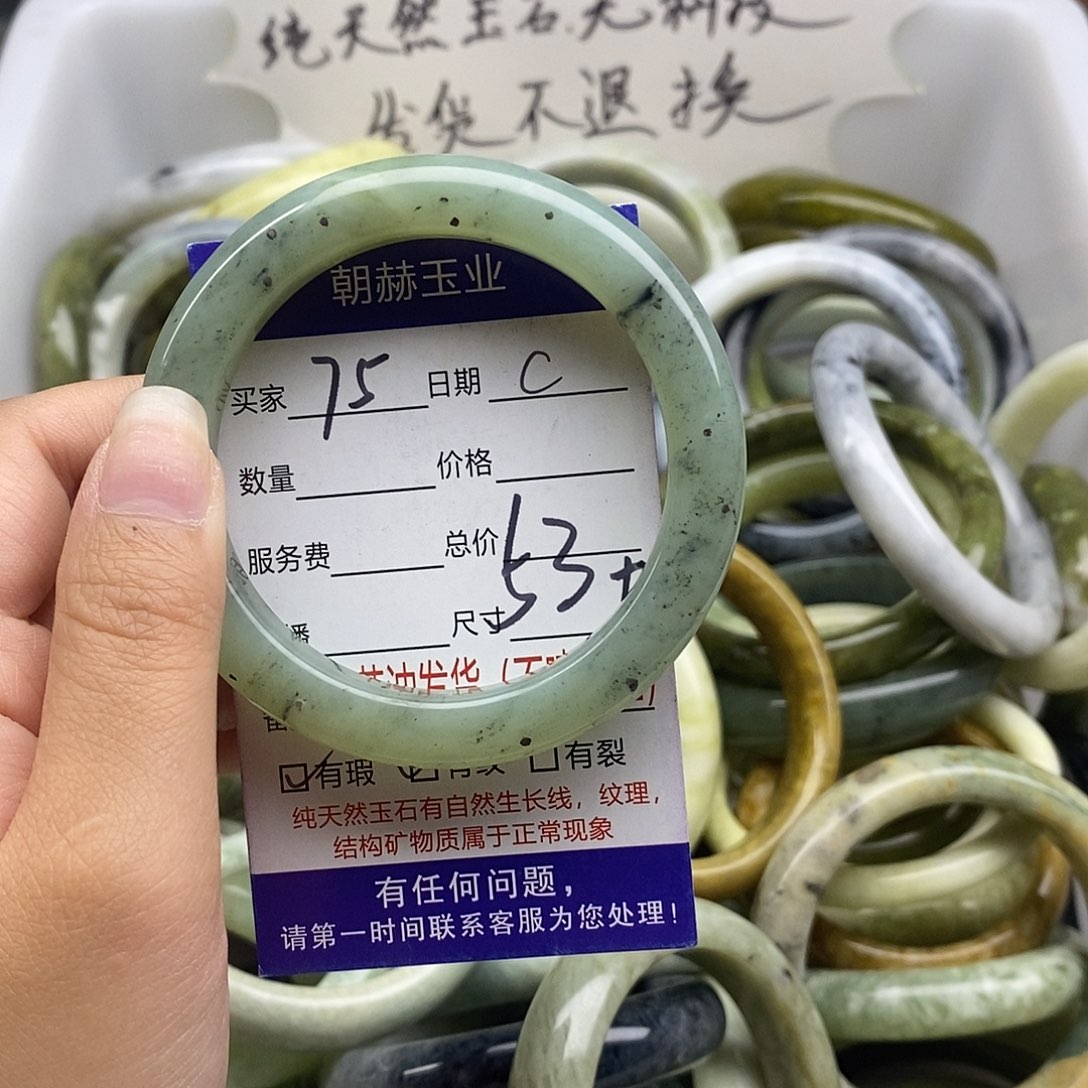 纯天然玉石.无
发货不退换
朝赫玉业
买家 75 日期 C
数量 价格
服务费 总价 53+
尺寸
发货
有瑕 有纹 有裂
纯天然玉石有自然生长线，纹理，
结构矿物质属于正常现象
有任何问题，
请第一时间联系客服为您处理！